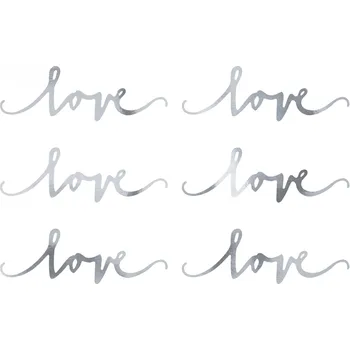 love love
love love
love love